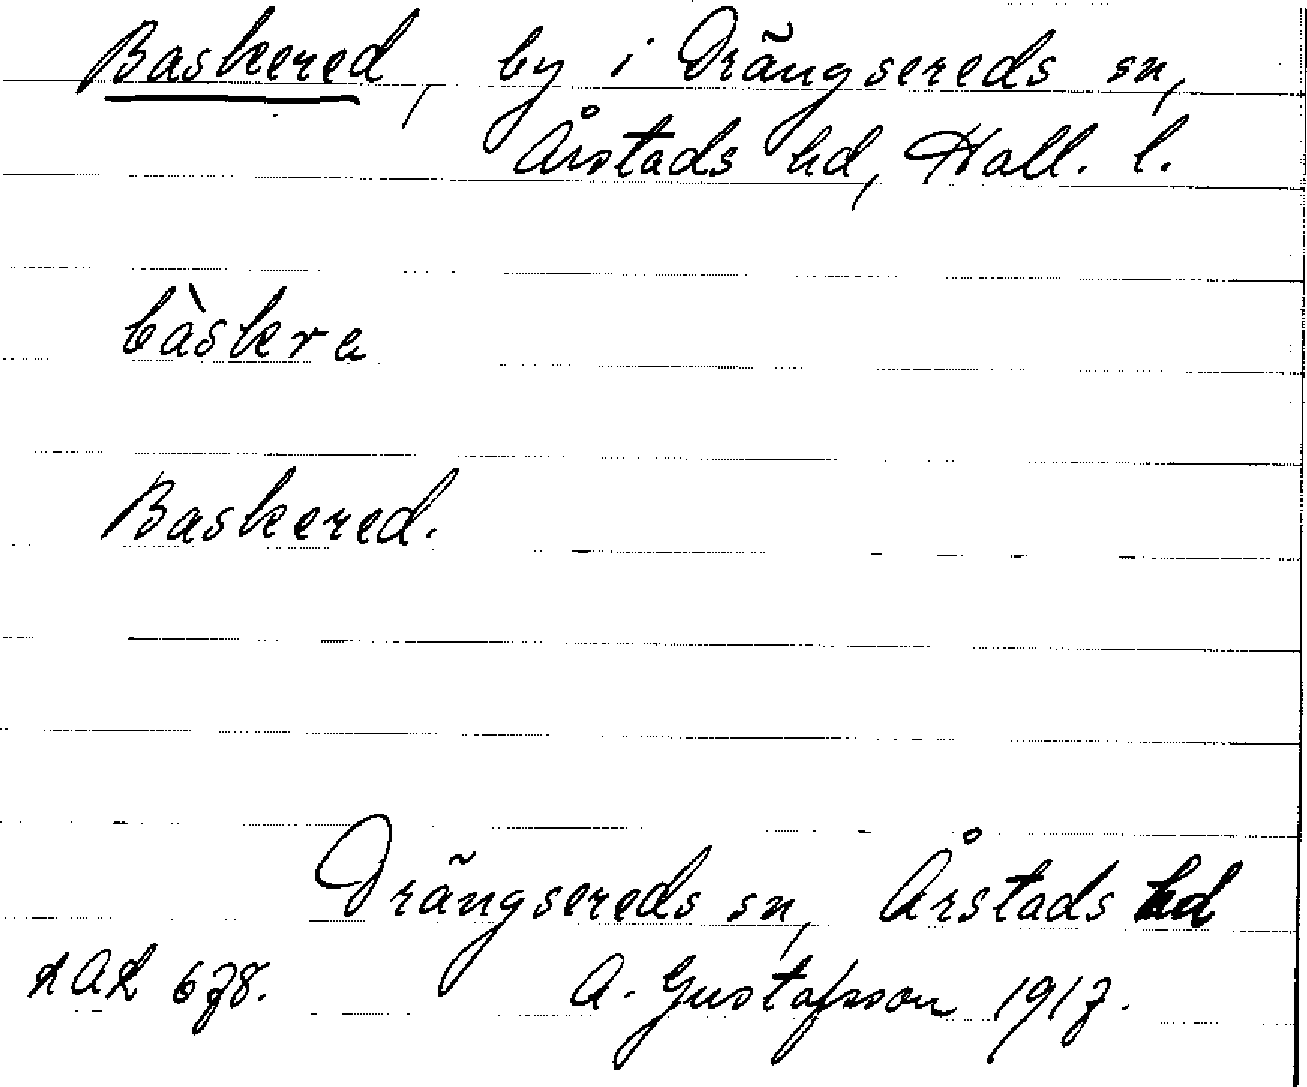 Baskered, by i Drängsereds sn,
Årstads hd, Hall. l.
bàskra
Baskered.
Drängsereds sn, Årstads hd
A. Gustafsson 1917.